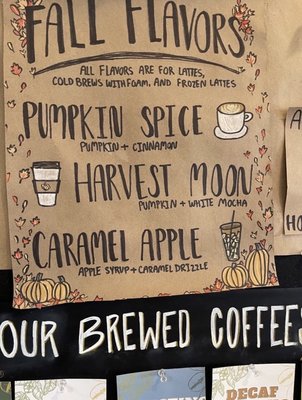 FALL FLAVORS
ALL FLAVORS ARE FOR LATTES,
COLD BREWS WITH FOAM, AND FROZEN LATTES
PUMPKIN SPICE
PUMPKIN + CINNAMON
HARVEST MOON
PUMPKIN + WHITE MOCHA
CARAMEL APPLE
APPLE SYRUP + CARAMEL DRIZZLE
OUR BREWED COFFEES
DECAF